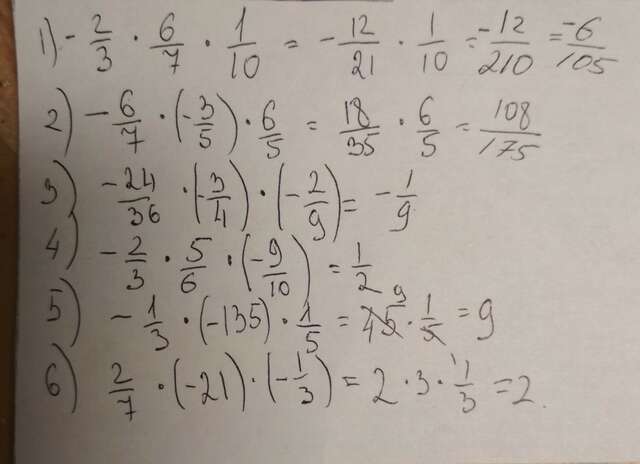 1) -2/3 · 6/7 · 1/10 = -12/21 · 1/10 = -12/210 = -6/105
2) -6/7 · (-3/5) · 6/5 = 18/35 · 6/5 = 108/175
3) -24/36 · (-3/4) · (-2/9) = -1/9
4) -2/3 · 5/6 · (-9/10) = 1/2
5) -1/3 · (-135) · 1/5 = 45 9 · 1/5 = 9
6) 2/7 · (-21) · (-1/3) = 2 · 3 · 1/3 = 2.